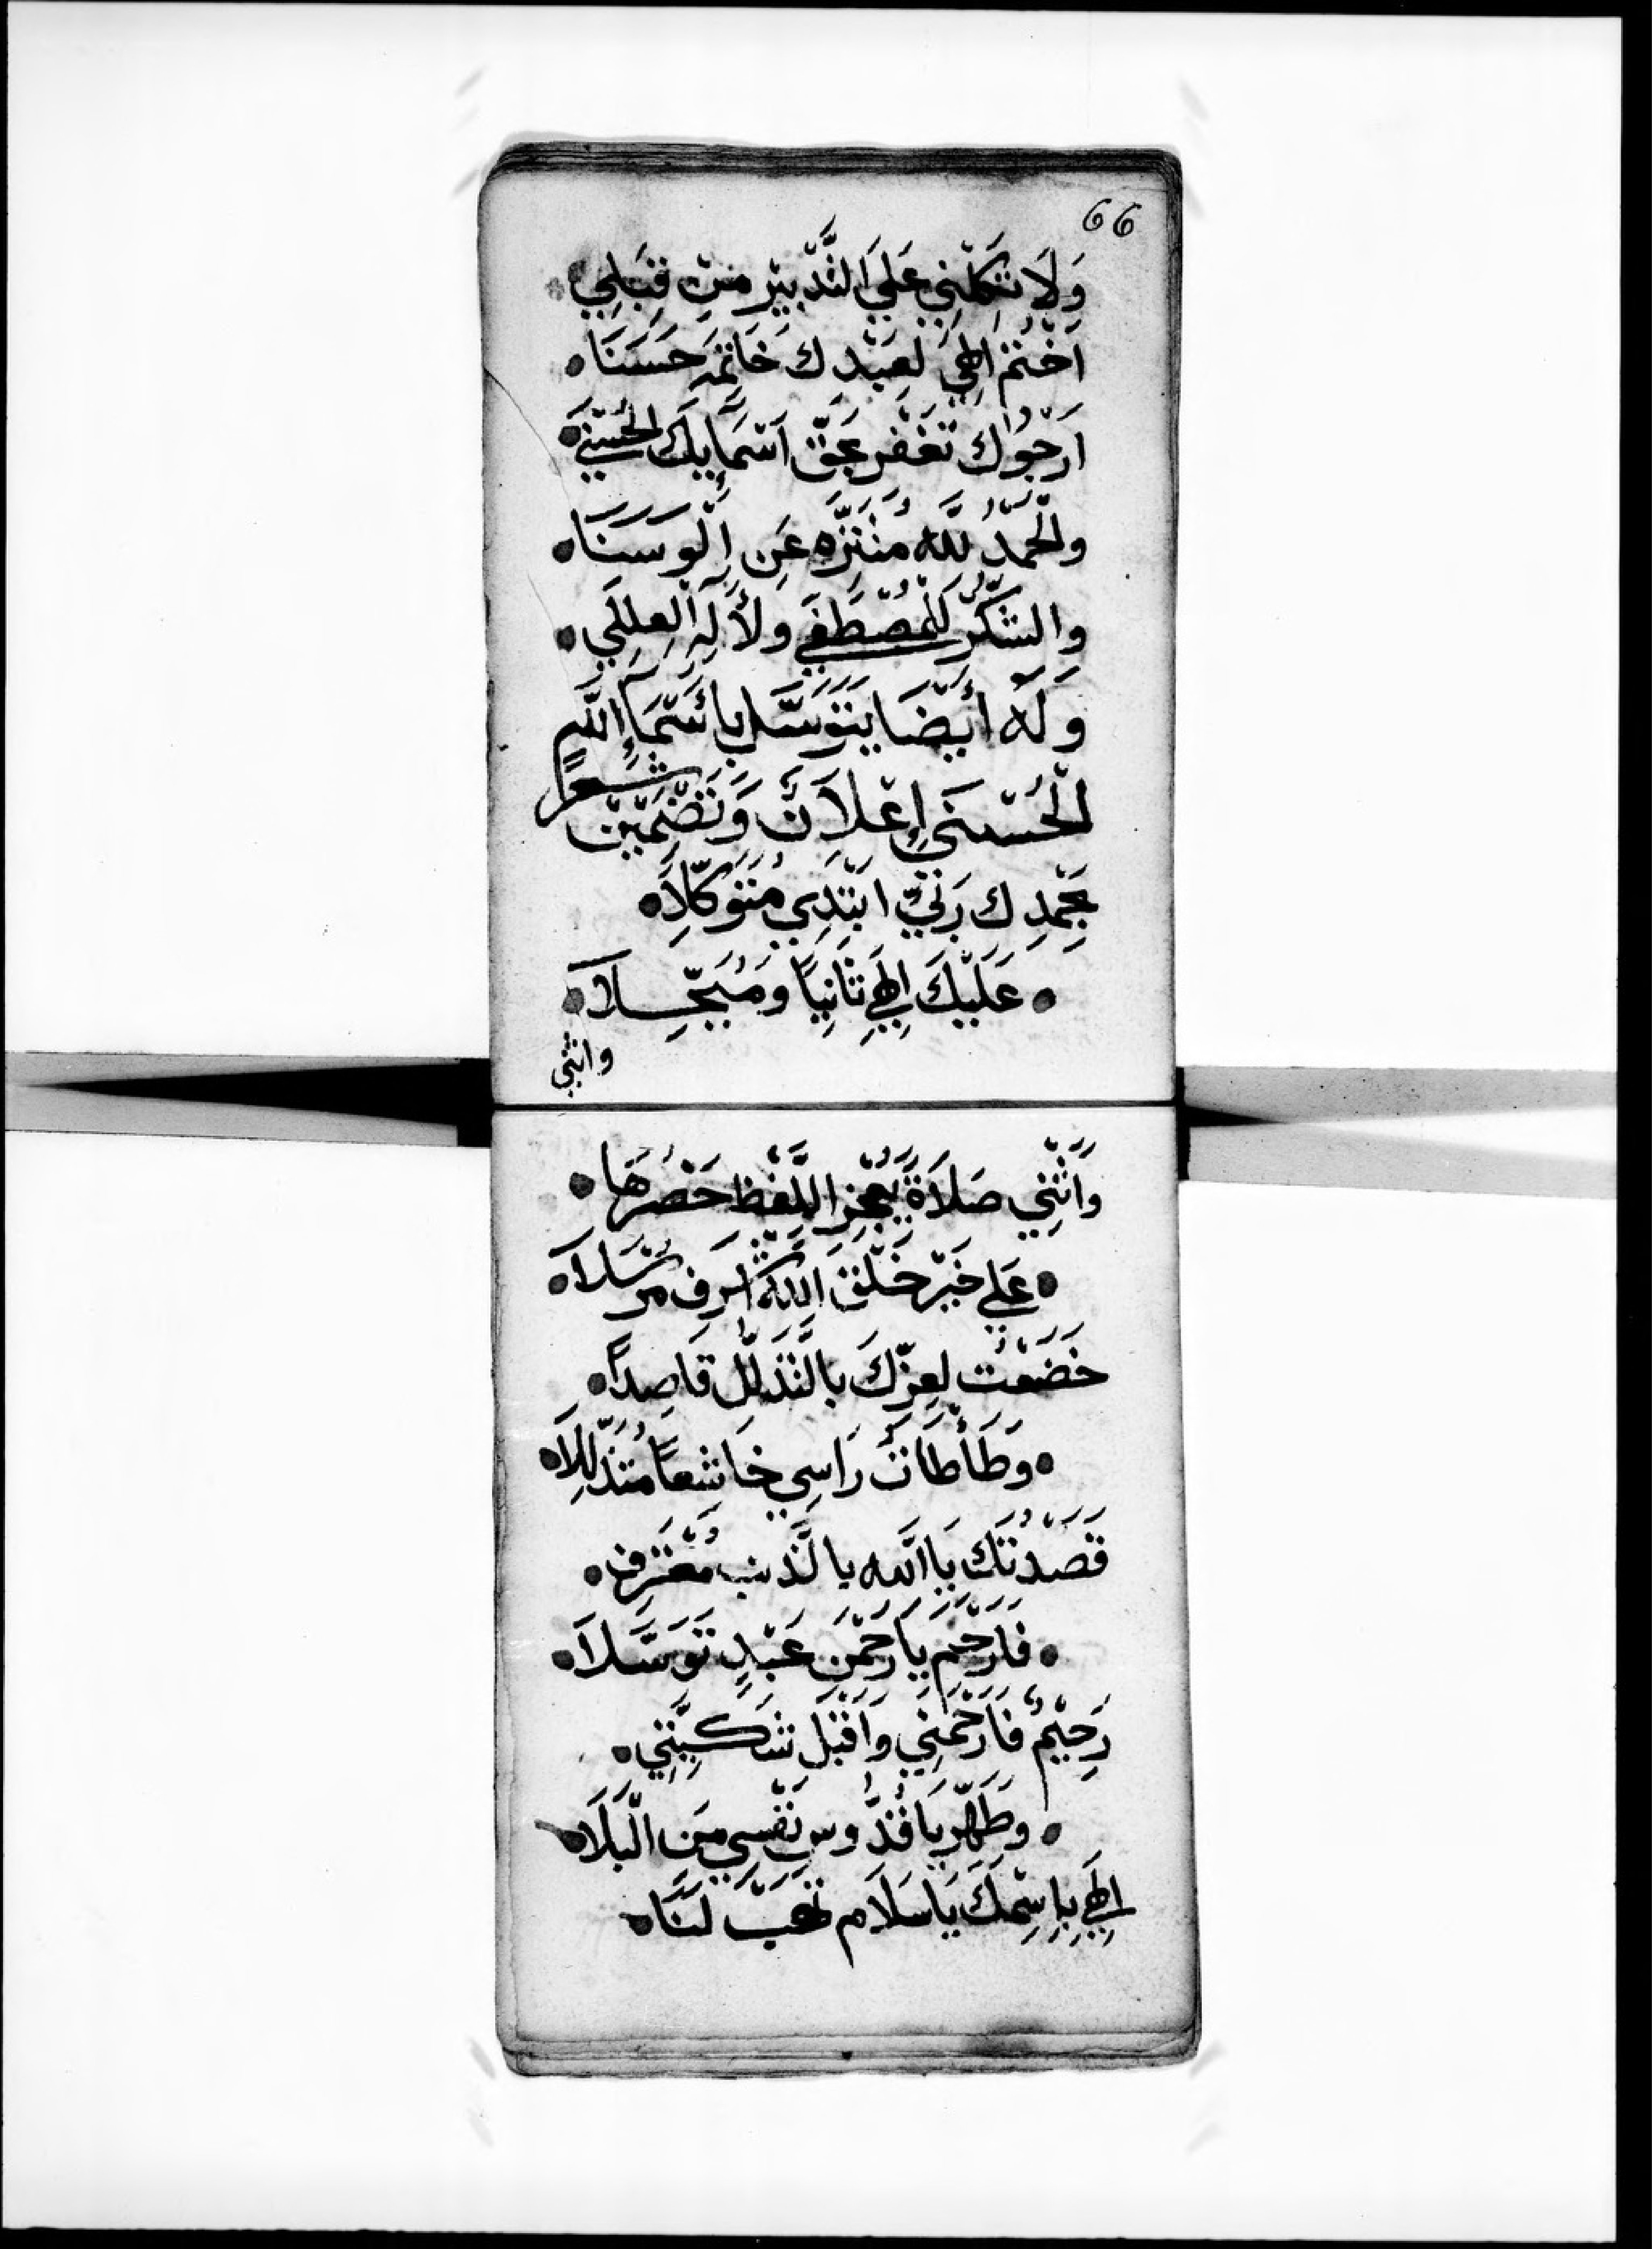 66
وَلَا تَتْكِلْنِي عَلَيَ التَّدْبِيْرِ مِنْ قِبَلِي
اَخْتُمْ اِلٰهِي لِعَبْدِك خَاتِمَه حَسَنَا
اَرْجُوْاك تَغْفِر بِحَقّ اَسْمَآيِكَ الْحُسْنَي
والْحَمْدُ للَّه مُنْتَزَّه عَنِ الْوَسَنَا
والشُكْرُ لِلْمُصْطَفَي ولأَلِهِ الْعِلِلَي
وَلَهُ أَيْضَا يَتَوَسَّل بِأَسْمَآءِ اللَّهِ
الْحُسْنَي إِعْلَانٌ وَتَضْمِيْن شعرًا
بِحَمْدِك رَبِّي ابْتَدِي مُتَوَكِّلَا
عَلَيْكَ اِلٰهِي ثَانِيًا وَمُبَجِّلَا
واثني
وَاثْنِي صَلَاةً يُعْجِز اللَّفْظ حَصْرُهَا
عَلي خَيْر خَلْق اللَّه اشَرَف مُرْسَلَا
خَضَعْتُ لِعِزِّكَ بالتَّذَلُّلِ قَاصِدًا
وَطَأْطَاتُ رَاسِي خَاشِعًا مُتَذَلِّلَا
قَصَدْتُكَ يَا اللَّه بالذَنب مُعْتَرِف
فَارْحَم يَا رَحْمٰن عَبْدٍ تَوَسَّلَا
رَحِيْمٌ فَارْحَمْنِي وَاقْبَل شَكِيَّتِي
وَطَهِّر يَا قُدُّوس نَفْسِي مِن الْبَلَا
اِلٰهِي بِاِسْمِكَ يَا سَلَام تَهَبْ لَنَا